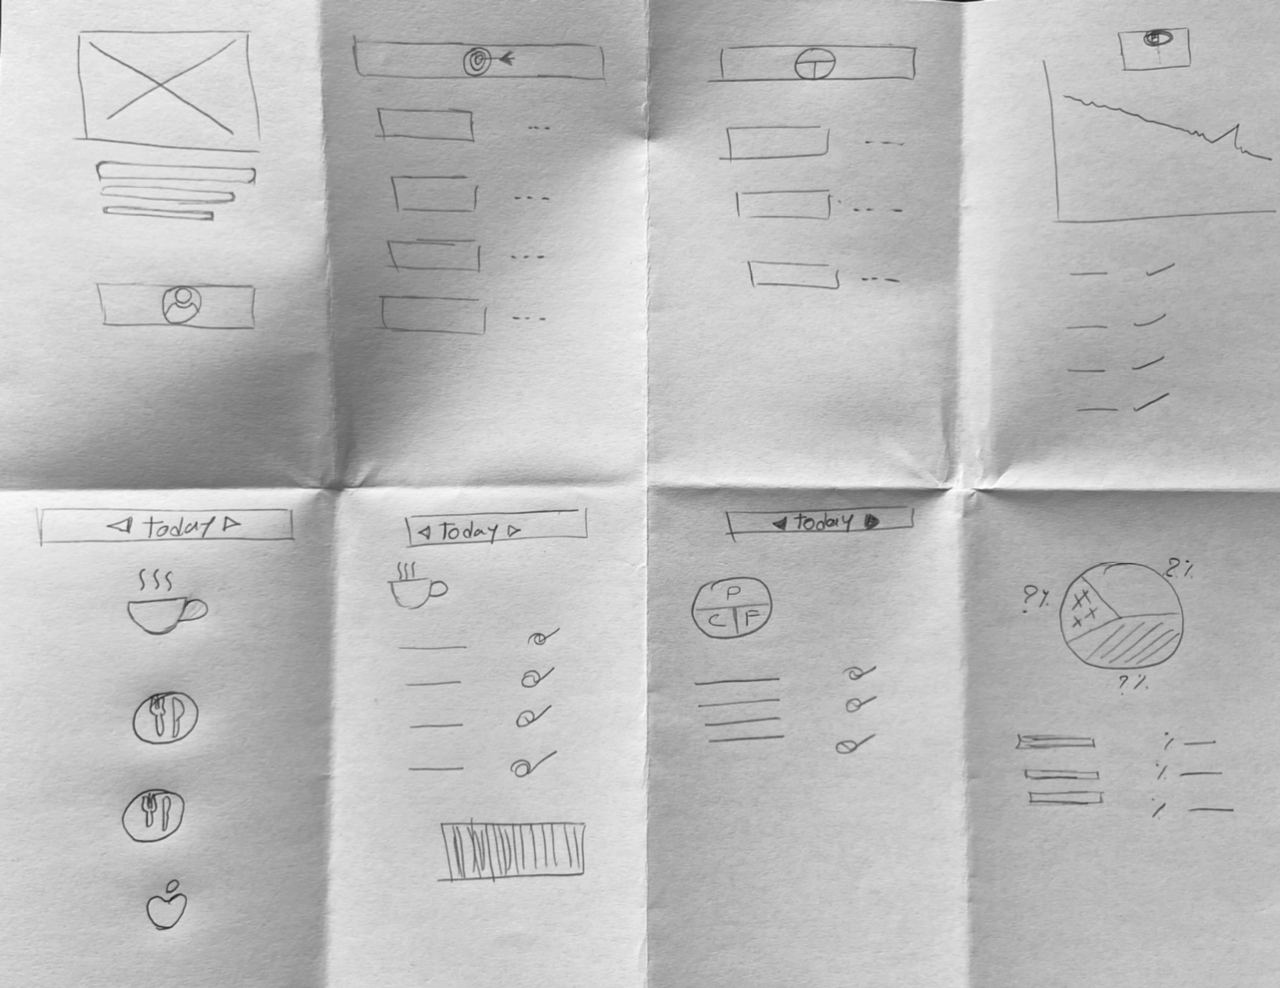 ◁ today ▷
◁ today ▷
◀ today ▶
P
C F
?%
?%
?%
%
%
%